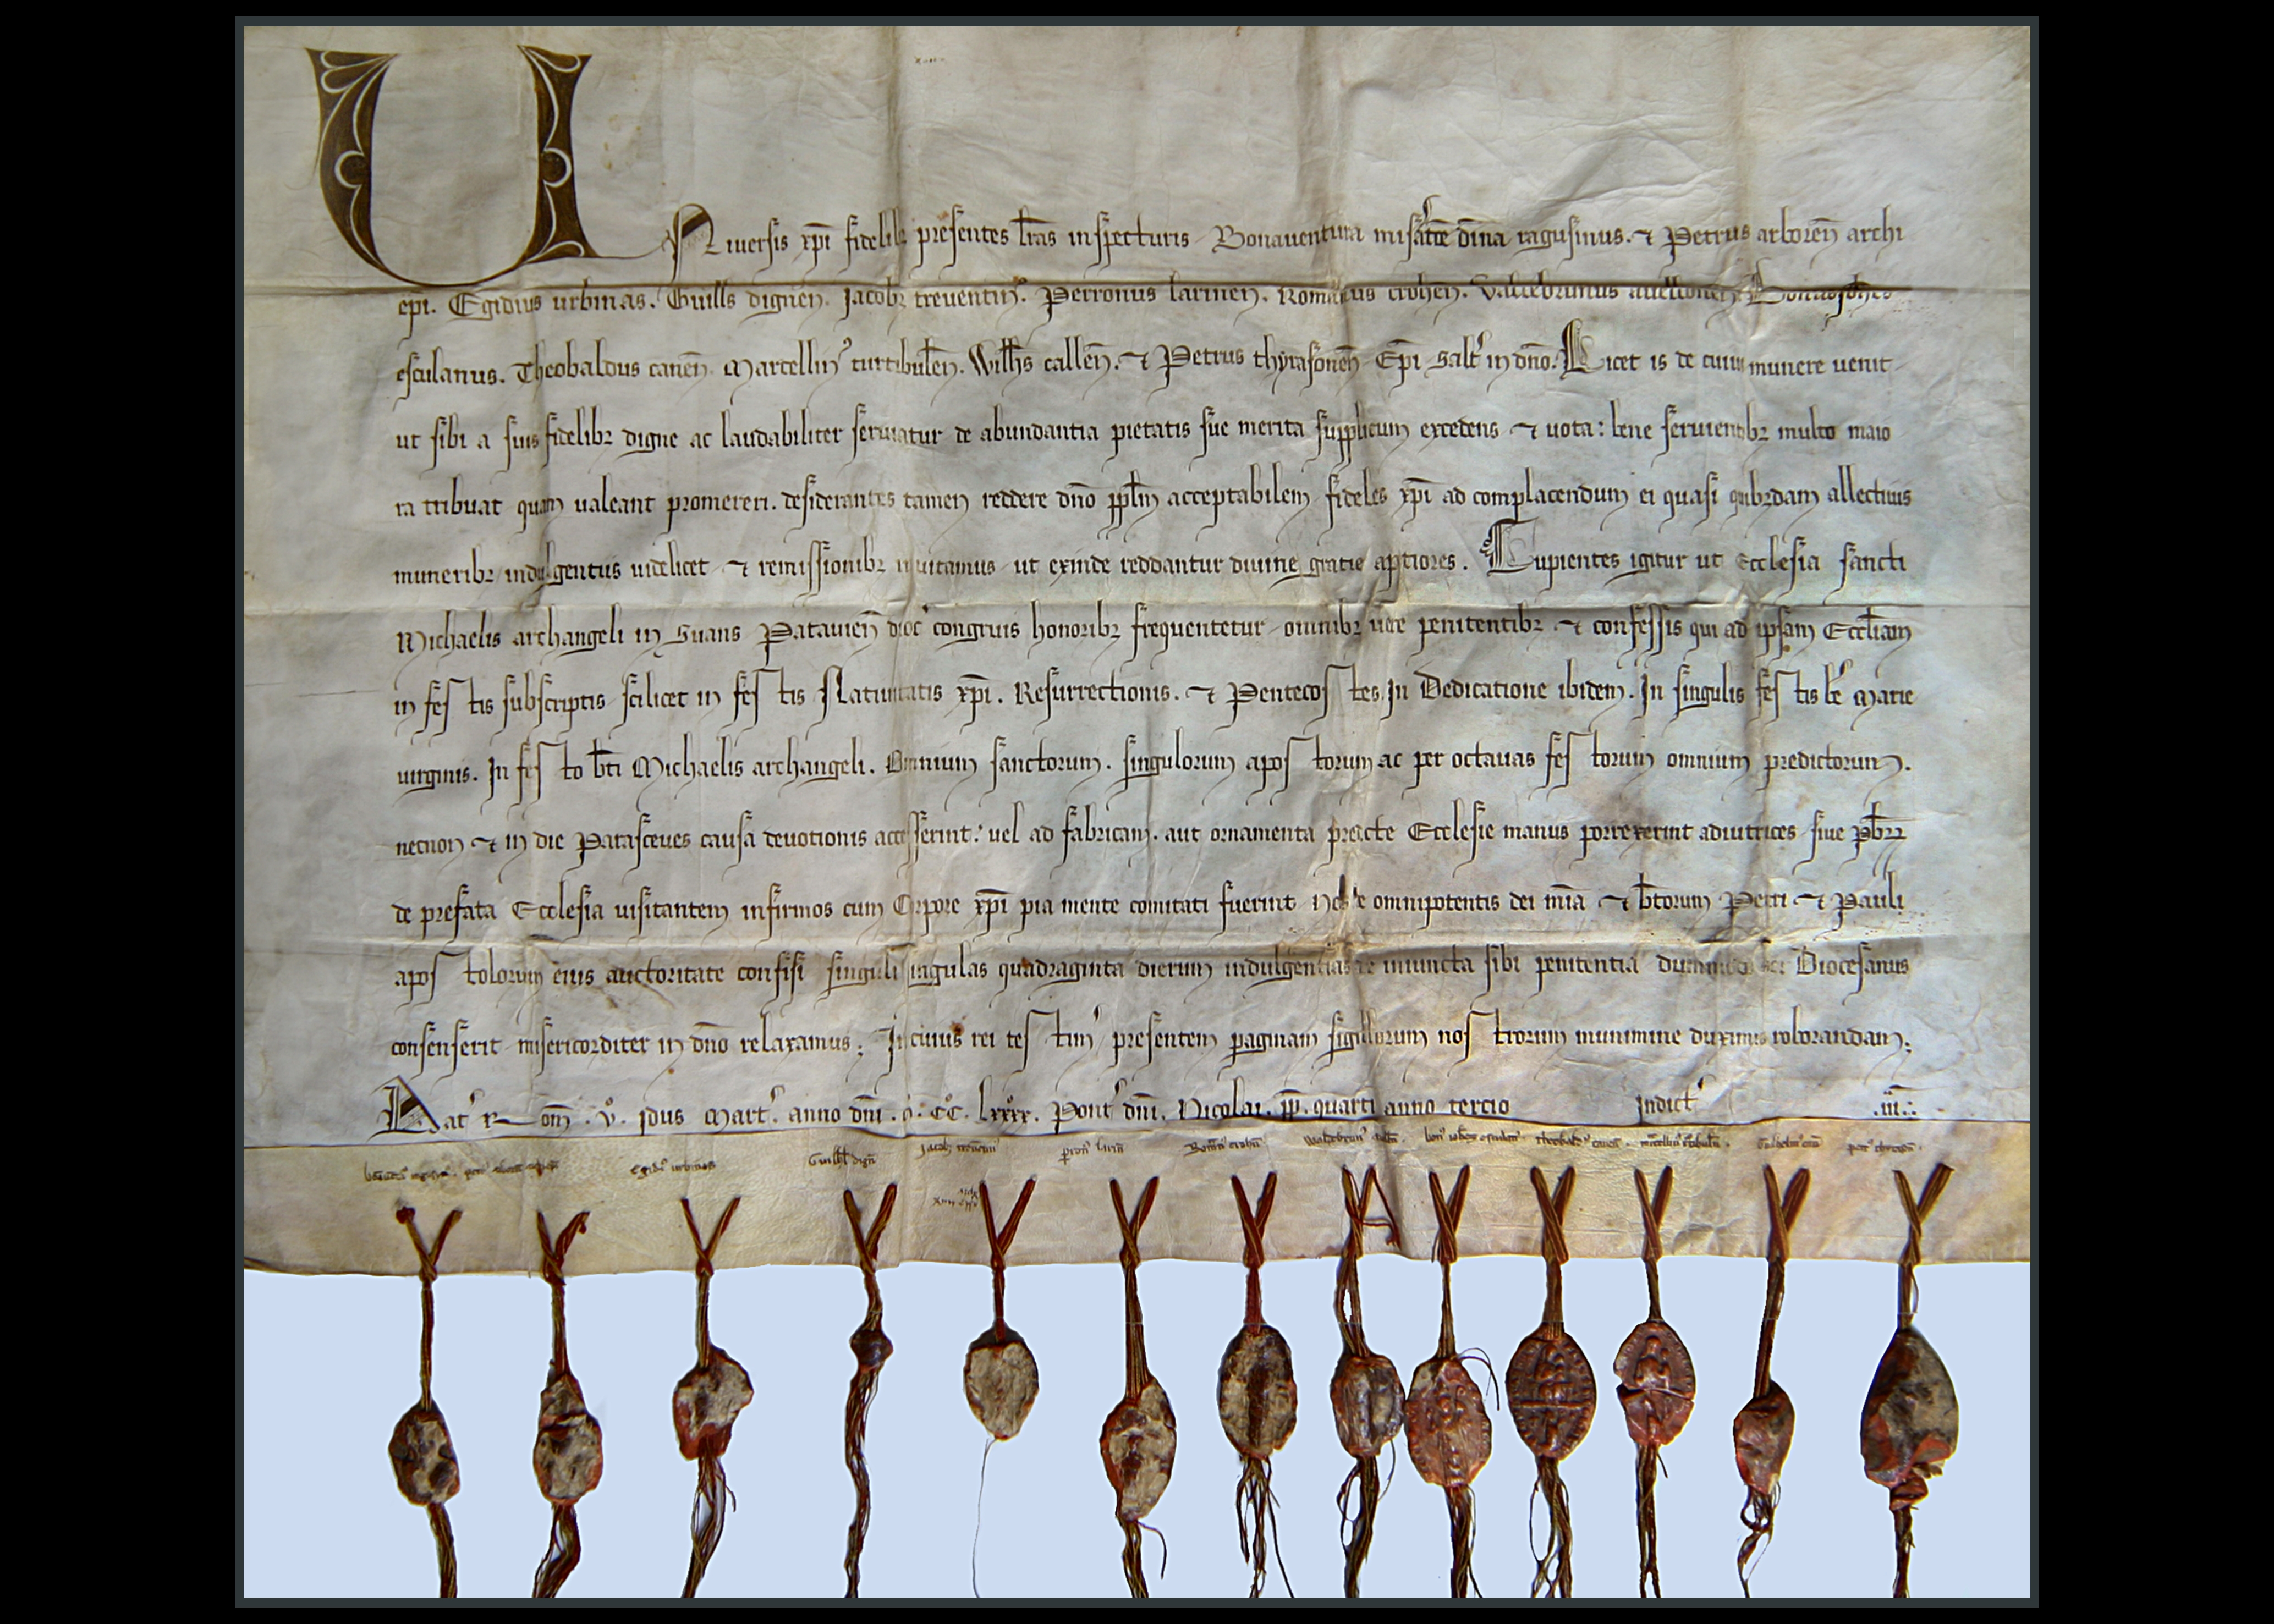 Uniuersis xp̄i fidelibꝫ presentes l̄ras inspecturis Bonauentura mis̄atōe diuīna ragusinus. ⁊ Petrus arboren̄ archi
ep̄i. Egidius urbinas. Guill̄s dignen̄. Jacobꝫ treuentin᾿. Perronus larinen̄. Romanus crohen̄. Valtebrunus auellonen̄
esculanus. Theobaldus canen̄. Marcellin᾿ turtibulen̄. Will̄s callen̄. ⁊ Petrus thyrasonen̄ Ep̄i Salt᾿ in dn̄o. Licet is de cuius munere uenit
ut sibi a suis fidelibꝫ digne ac laudabiliter seruiatur de abundantia pietatis sue merita supplicum excedens ⁊ uota: bene seruientibꝫ multo maio
ra tribuat quam ualeant promereri. desiderantes tamen reddere dn̄o pp̄lm acceptabilem fideles xp̄i ad complacendum ei quasi quibꝫdam allectiuis
muneribꝫ indulgentiis uidelicet ⁊ remissionibꝫ inuitamus ut exinde reddantur diuine gratie aptiores. Cupientes igitur ut Ecclesia sancti
Michaelis archangeli in Suans Patauien̄ dioc᾿ congruis honoribꝫ frequentetur omnibꝫ uere penitentibꝫ ⁊ confessis qui ad ipsam Eccl̄iam
in festis subscriptis scilicet in festis Natiuitatis xp̄i. Resurrectionis. ⁊ Pentecostes. In Dedicatione ibidem. In singulis festis be᾿ Marie
uirginis. In festo bt̄i Michaelis archangeli. Omnium sanctorum. singulorum apostorum ac per octauas festorum omnium predictorum.
necnon ⁊ in die Parasceues causa deuotionis accesserint: uel ad fabricam. aut ornamenta predicte Ecclesie manus porrexerint adiutrices siue
de prefata Ecclesia uisitantem infirmos cum Corpore xp̄i pia mente comitati fuerint omnipotentis dei mīa ⁊ bt̄orum Petri ⁊ Pauli
apostolorum eius auctoritate confisi singuli singulas quadraginta dierum indulgentias de iniuncta sibi penitentia dummodo Diocesanus
consenserit misericorditer in dn̄o relaxamus; In cuius rei testim᾿ presentem paginam sigillorum nostrorum munimine duximus roborandam;
Dat᾿ Rom̄. v. Idus Mart᾿. anno dn̄i. M. CC. Lxxxx. Pont᾿ dn̄i. Nicolai. pp̄. quarti anno tercio Indict᾿ .iii.
Egidi᾿ urbinas Guill̄ dign̄ Jacobꝫ